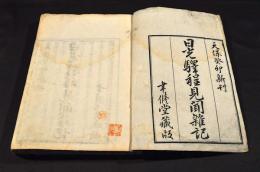 天保癸卯新刊
日光驛程見聞雜記
韋修堂藏版